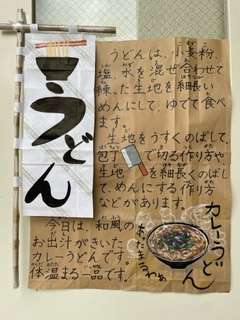 うどん
うどんは、小麦粉、
塩、水を混ぜ合わせて
練った生地を細長い
めんにして、ゆでて食べ
ます。
生地をうすくのばして、
包丁で切る作り方や
生地を細長くのばし
てめんにする作り方
などがあります。
今日は、和風の
お出汁がきいた
カレーうどんです。
体温まる一品です。
カレーうどん